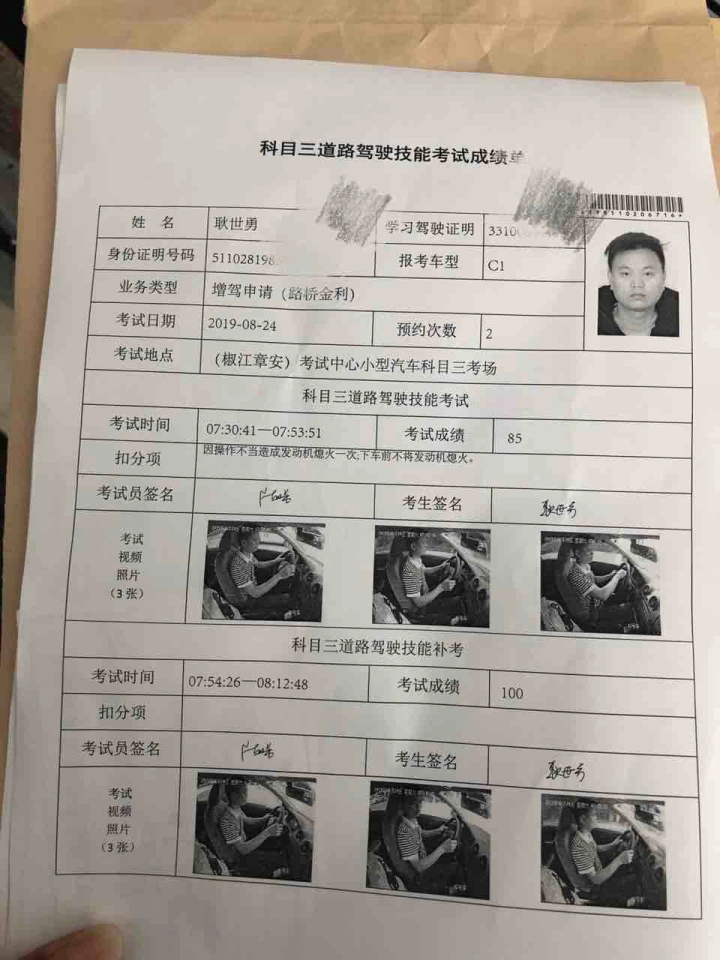 科目三道路驾驶技能考试成绩单
姓 名 耿世勇 学习驾驶证明 3310
身份证明号码 511028198 报考车型 C1
业务类型 增驾申请（路桥金利）
考试日期 2019-08-24 预约次数 2
考试地点 （椒江章安）考试中心小型汽车科目三考场
科目三道路驾驶技能考试
考试时间 07:30:41—07:53:51 考试成绩 85
扣分项 因操作不当造成发动机熄火一次;下车前不将发动机熄火。
考试员签名 考生签名 耿世勇
考试
视频
照片
（3 张）
科目三道路驾驶技能补考
考试时间 07:54:26—08:12:48 考试成绩 100
扣分项
考试员签名 考生签名 耿世勇
考试
视频
照片
（3 张）